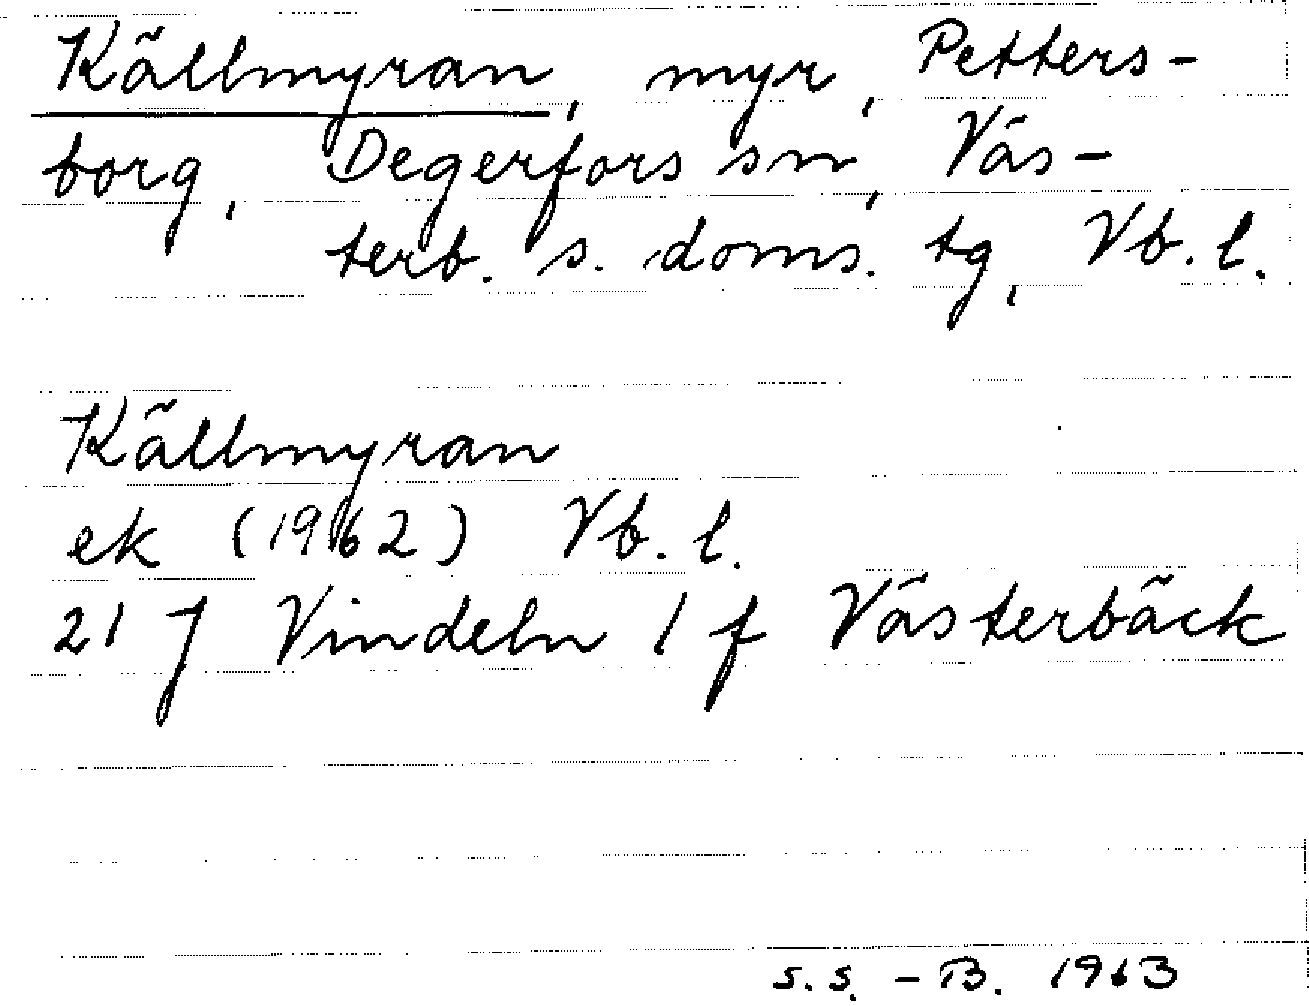 Källmyran, myr, Petters-
borg, Degerfors sn, Väs-
terb. s. doms. tg, Vb. l.
Källmyran
ek (1962) Vb. l.
21 J Vindeln 1 f Västerbäck
S.S. - B. 1963